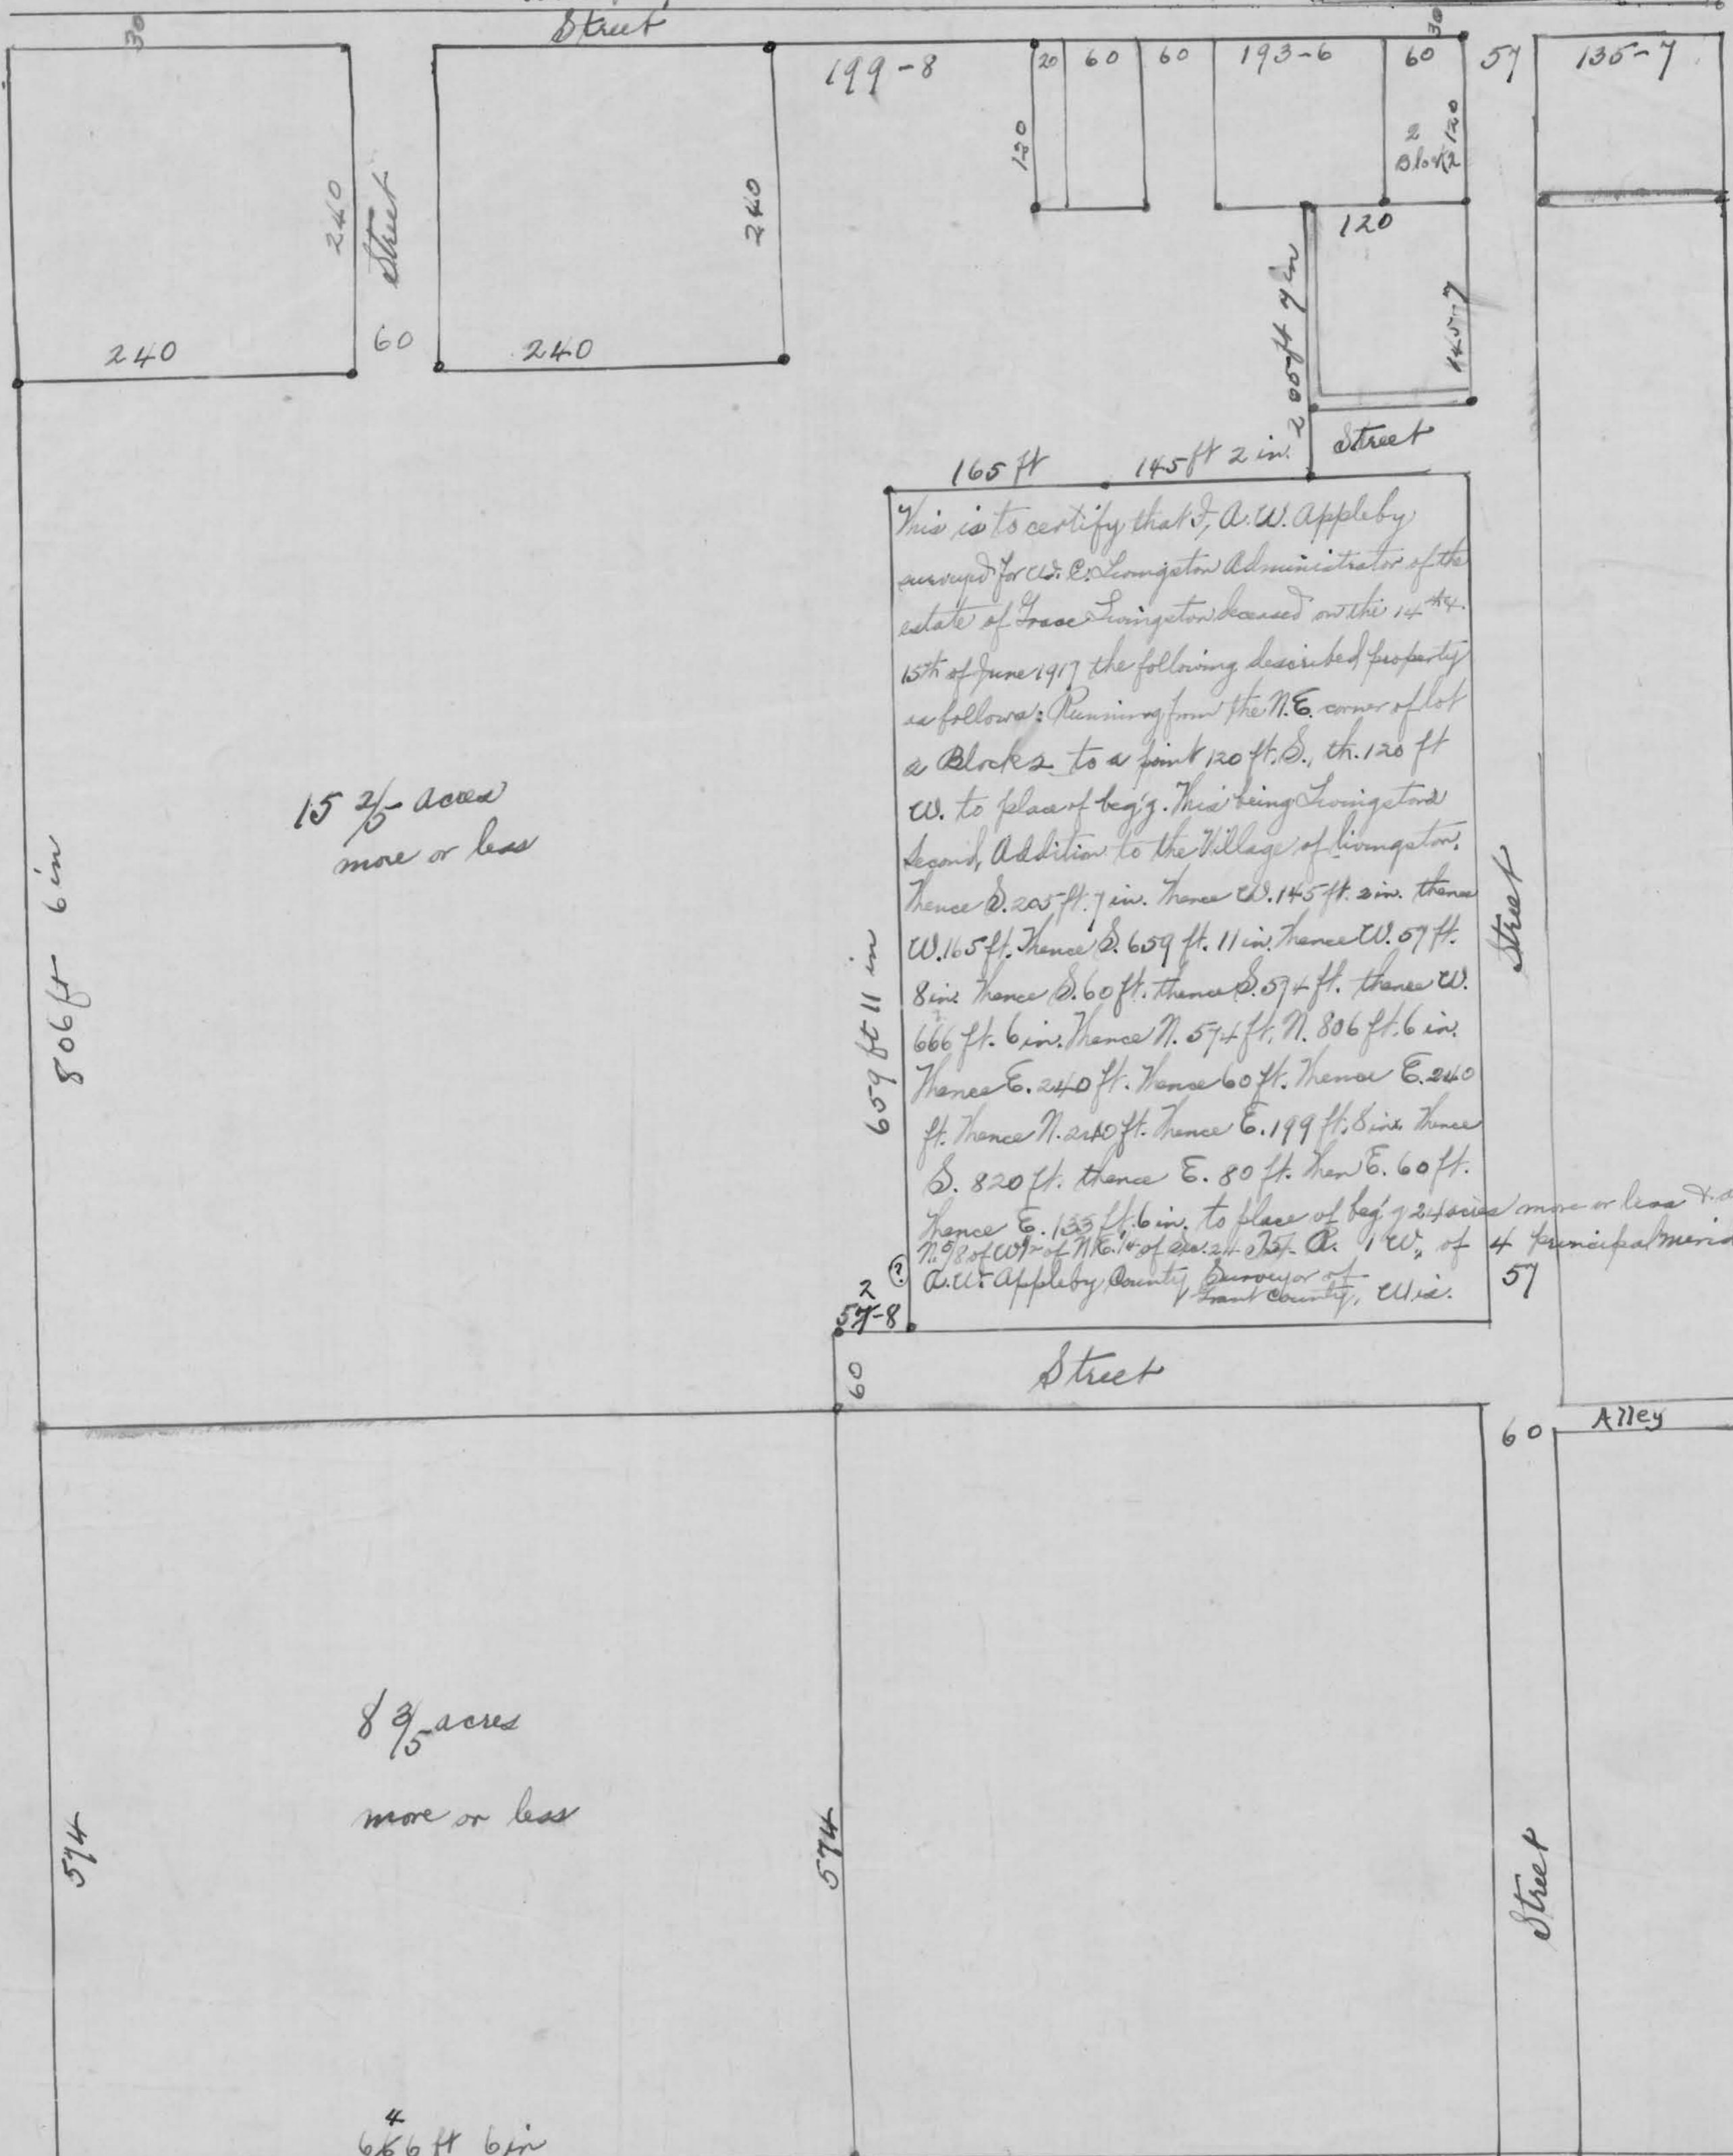 Street
30
30
199-8
20
60
60
193-6
60
57
135-7
120
2
Block 2
120
240
Street
240
240
60
240
120
145-7
205 ft 7 in
Street
165 ft
145 ft 2 in.
This is to certify that I, A. W. Appleby
surveyed for W. C. Livingston Administrator of the
estate of Livingston deceased on the 14th &
15th of June 1917 the following described property
as follows: Running from the N.E. corner of lot
2 Block 2 to a point 120 ft. S., th. 120 ft
W. to place of beg'g. This being Livingstons
Second, Addition to the Village of livingston.
Thence S. 205 ft. 7 in. Thence W. 145 ft. 2 in. thence
W. 165 ft. Thence S. 659 ft. 11 in. Thence W. 57 ft.
8 in. Thence S. 60 ft. thence S. 574 ft. thence W.
666 ft. 6 in. Thence N. 574 ft, N. 806 ft. 6 in.
Thence E. 240 ft. Thence 60 ft. Thence E. 240
ft. Thence N. 240 ft. Thence E. 199 ft. 8 in. Thence
S. 820 ft. thence E. 80 ft. Then E. 60 ft.
Thence E. 133 ft. 6 in. to place of beg'g 24 acres more or less &
N. 5/8 of W 1/2 of N.E. 1/4 of Sec. 24 R. 1 W., of 4 principal
A. W. Appleby County Surveyor of
Grant County, Wis.
15 2/5 acres
more or less
806 ft 6 in
659 ft 11 in
Street
57
(?)
2
57-8
60
Street
60
Alley
8 3/5 acres
more or less
574
574
Street
4
666 ft 6 in